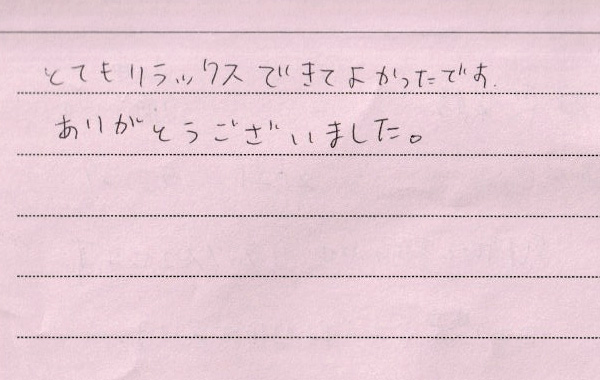 とてもリラックスできてよかったです.
ありがとうございました。